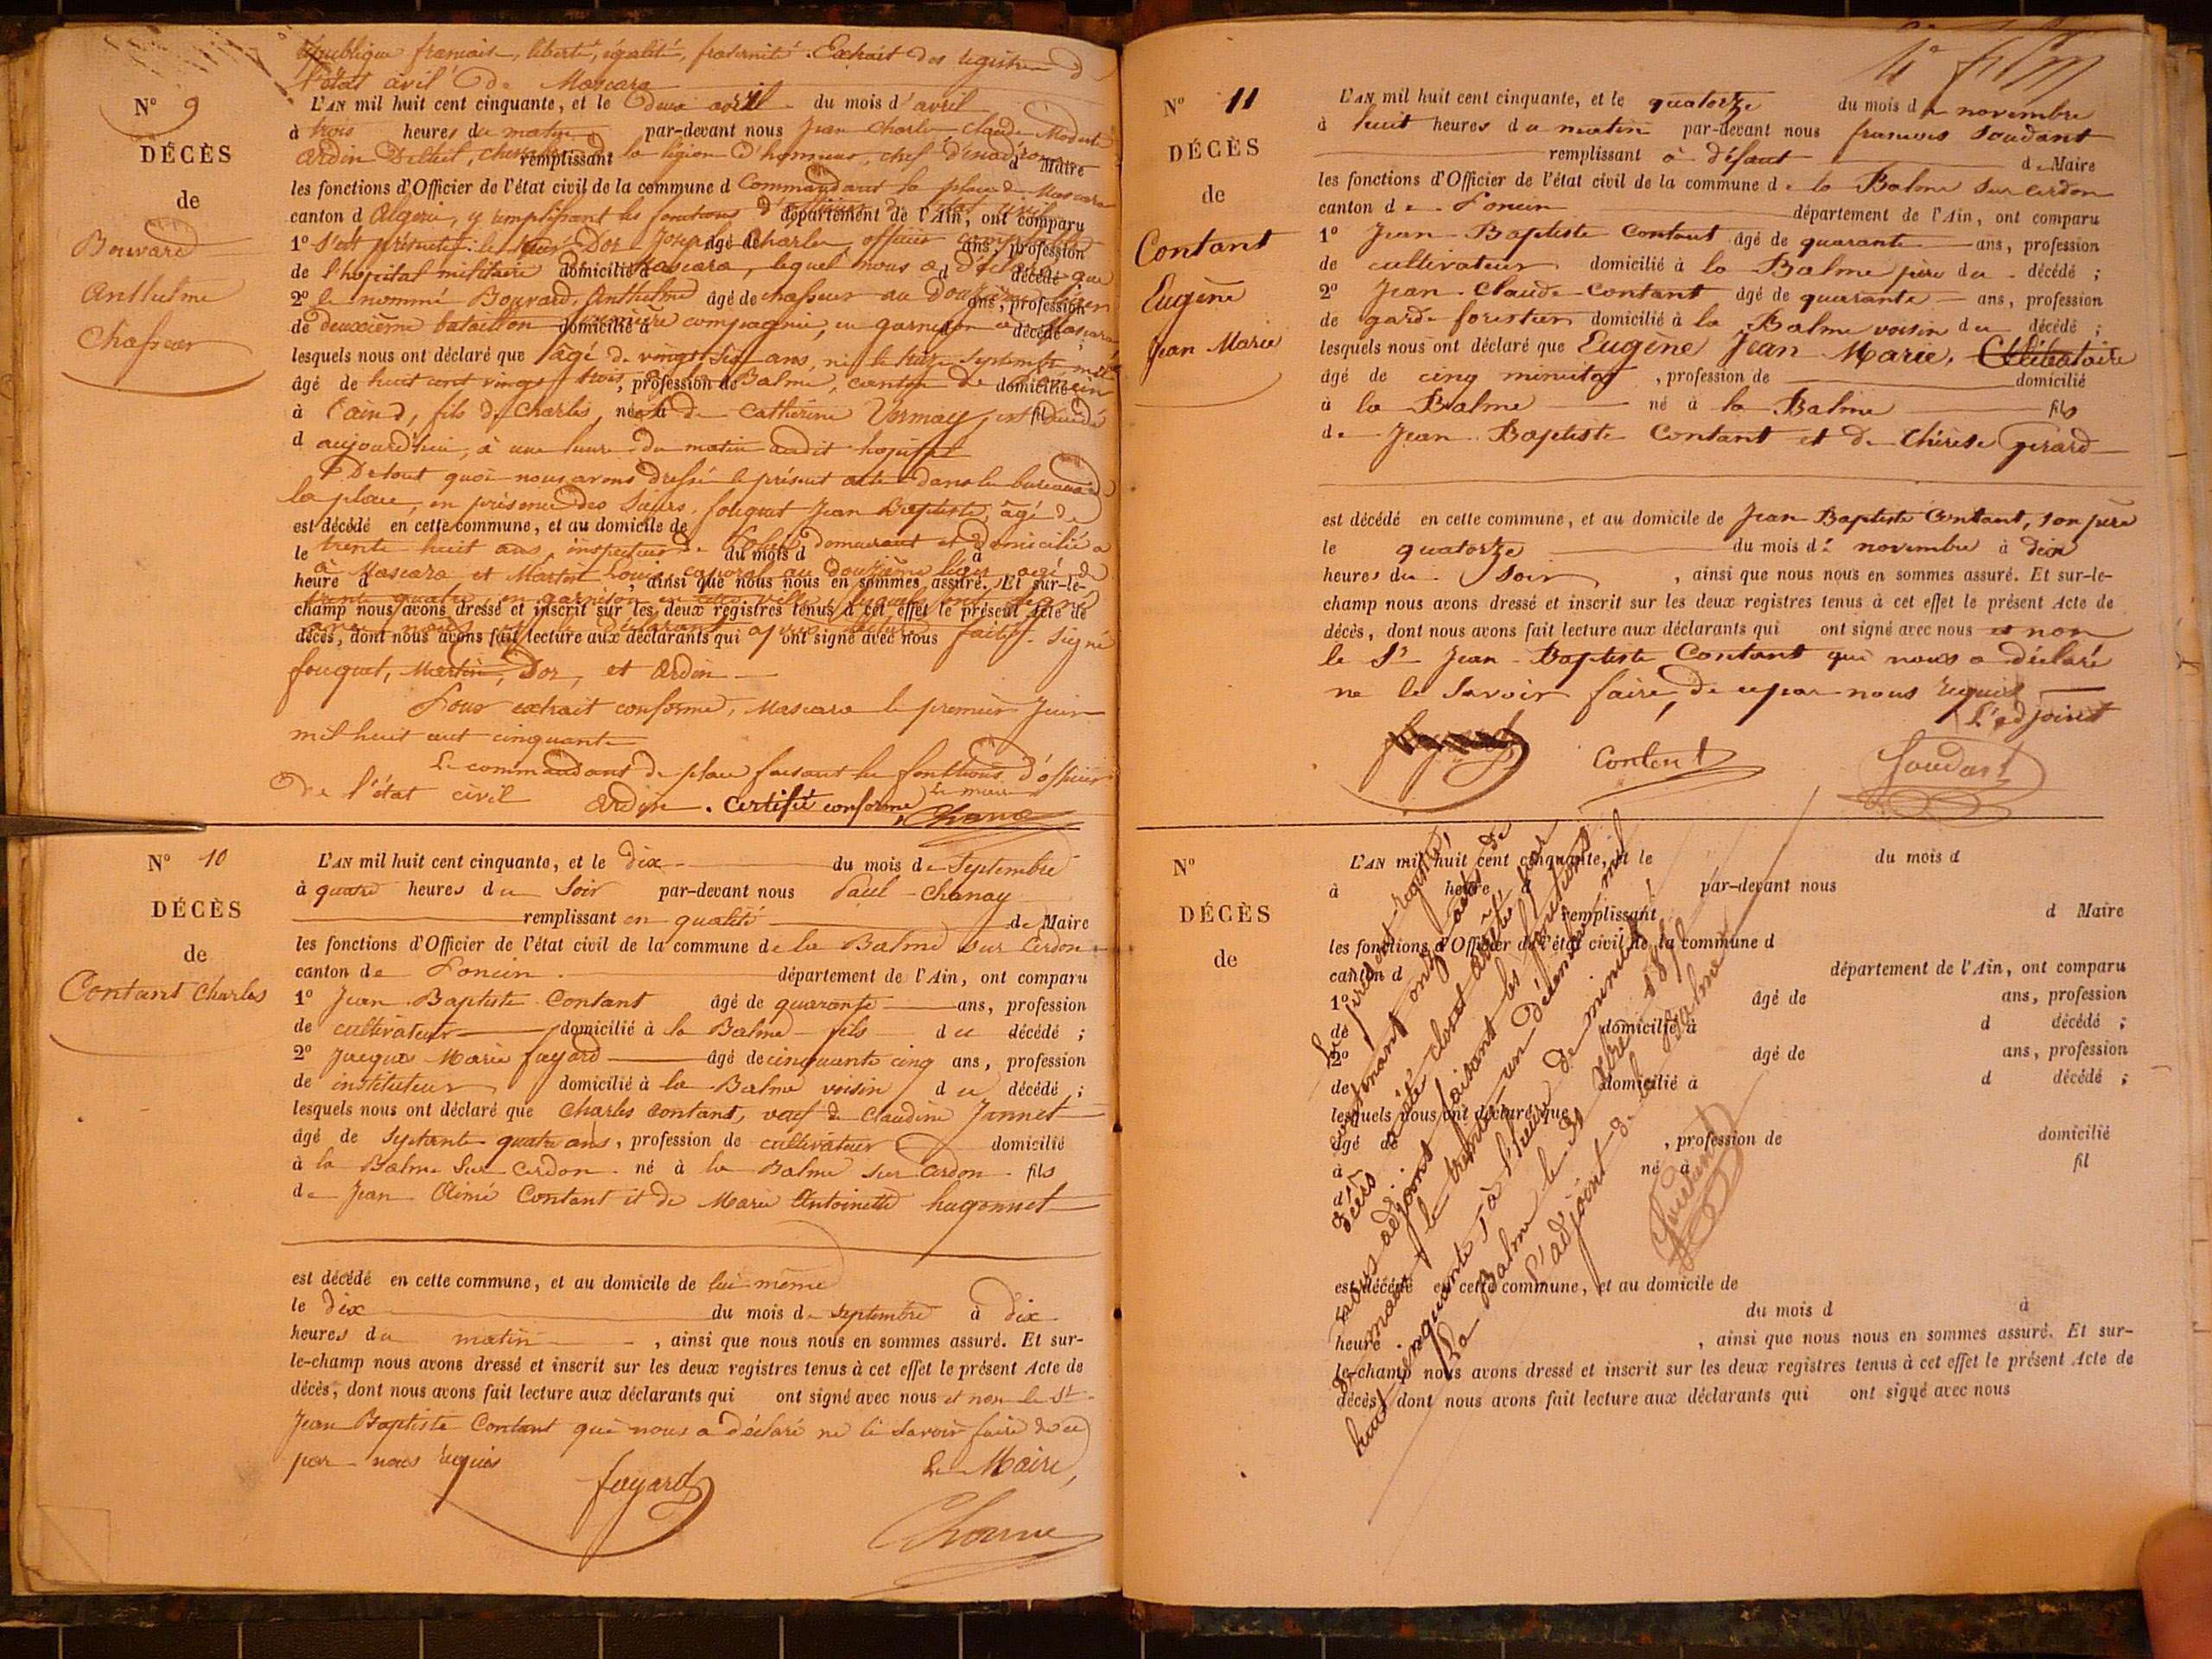 république francaise, liberté, égalité, fraternité. Extrait des registres de
l'état civil de Mascara
N° 9
DÉCÈS
de
Bouvard
Anthelme
Chasseur
L'AN mil huit cent cinquante, et le deux avril du mois d'avril
à trois heures du matin par-devant nous Jean Charles Claude Modeste
Ardin Delteil, chevalier remplissant de la légion d'honneur, chef d'escadron d Maire
les fonctions d'Officier de l'état civil de la commune d Commandant la place de Mascara
canton d Algerie, y remplissant les fonctions d'officier de l'état civil département de l'Ain, ont comparu
1° s'est présenté: le sieur Dor Joseph âgé de Charles, officier ans, profession
de l'hopital militaire domicilié à Mascara, lequel nous a déclaré que d décédé
2° le nommé Bouvard, Anthelme âgé de chasseur au douzième léger ans, profession
de deuxième bataillon domicilié à première compagnie, en garnison à Mascara décédé ;
lesquels nous ont déclaré que âgé de vingt six ans, né le huit Septembre mil
âgé de huit cent vingt trois, profession de la Balme, canton de domicilié Poncin
à l'ain, fils de Charles, né à et de Catherine Vermay, est décédé fil
d aujourd'hui, à une heure du matin audit hopital
De tout quoi nous avons dressé le présent acte dans le bureau de
la place, en présence des Sieurs fouquet Jean Baptiste, âgé de
est décédé en cette commune, et au domicile de
le trente huit ans, inspecteur de Police du mois d demeurant et domicilié à à
à Mascara et Martin Louis, caporal au douzième léger, agé de
heure d , ainsi que nous nous en sommes assuré. Et sur-le-
trente quatre, en garnison en cette ville, lesquels ont signé
champ nous avons dressé et inscrit sur les deux registres tenus à cet effet le présent Acte de
avec nous et le déclarant après lecture
décès, dont nous avons fait lecture aux déclarants qui ont signé avec nous faite. Signé
fouquet, Martin, Dor, et Ardin
Pour extrait conforme, Mascara le premier Juin
mil huit cent cinquante
Le commandant de place faisant les fonctions d'officier
de l'état civil Ardin. Certifié conforme, Le maire
N° 10
DÉCÈS
de
Contant Charles
L'AN mil huit cent cinquante, et le dix du mois de Septembre
à quatre heures du Soir par-devant nous Paul Chanay
remplissant en qualité de Maire
les fonctions d'Officier de l'état civil de la commune de la Balme sur Cerdon
canton de Poncin département de l'Ain, ont comparu
1° Jean Baptiste Contant âgé de quarante ans, profession
de cultivateur domicilié à la Balme fils du décédé ;
2° Jacques Marie fayard âgé de cinquante cinq ans, profession
de instituteur domicilié à la Balme voisin du décédé ;
lesquels nous ont déclaré que Charles Contant, veuf de Claudine Jannet
âgé de septante quatre ans, profession de cultivateur domicilié
à la Balme Sur Cerdon né à la Balme sur Cerdon fils
de Jean Aimé Contant et de Marie Antoinette hugonnet
est décédé en cette commune, et au domicile de lui même
le dix du mois de Septembre à dix
heures du matin , ainsi que nous nous en sommes assuré. Et sur-
le-champ nous avons dressé et inscrit sur les deux registres tenus à cet effet le présent Acte de
décès, dont nous avons fait lecture aux déclarants qui ont signé avec nous et non le Sr
Jean Baptiste Contant qui nous a déclaré ne le savoir faire de ce
par nous requis
fayard
Le Maire,
N° 11
DÉCÈS
de
Contant
Eugène
Jean Marie
L'AN mil huit cent cinquante, et le quatorze du mois de novembre
à huit heures du matin par-devant nous francois Soudant
remplissant à défaut de Maire
les fonctions d'Officier de l'état civil de la commune de la Balme Sur Cerdon
canton de Poncin département de l'Ain, ont comparu
1° Jean Baptiste Contant âgé de quarante ans, profession
de cultivateur domicilié à la Balme père du décédé ;
2° Jean Claude Contant âgé de quarante ans, profession
de garde forestier domicilié à la Balme voisin du décédé ;
lesquels nous ont déclaré que Eugène Jean Marie, Célibataire
âgé de cinq minutes , profession de domicilié
à la Balme né à la Balme fils
de Jean Baptiste Contant et de thérèse Girard
est décédé en cette commune, et au domicile de Jean Baptiste Contant, son père
le quatorze du mois de novembre à dix
heures du Soir , ainsi que nous nous en sommes assuré. Et sur-le-
champ nous avons dressé et inscrit sur les deux registres tenus à cet effet le présent Acte de
décès, dont nous avons fait lecture aux déclarants qui ont signé avec nous et non
le Sr Jean Baptiste Contant qui nous a déclaré
ne le Savoir faire, de ce par nous requis
L'adjoint
Contant
Soudant
N°
DÉCÈS
de
L'AN mil huit cent cinquante, et le du mois d
à heure par-devant nous
remplissant d Maire
les fonctions d'Officier de l'état civil de la commune d
canton d département de l'Ain, ont comparu
1° âgé de ans, profession
de domicilié à d décédé ;
2° âgé de ans, profession
de domicilié à d décédé ;
lesquels nous ont déclaré que
âgé de , profession de domicilié
à né à fil
d
est décédé en cette commune, et au domicile de
du mois d à
heure , ainsi que nous nous en sommes assuré. Et sur-
le-champ nous avons dressé et inscrit sur les deux registres tenus à cet effet le présent Acte de
décès, dont nous avons fait lecture aux déclarants qui ont signé avec nous
Le présent registre,
contenant onze actes de
décès a été clos et arrêté par
nous adjoint faisant les fonctions
de maire, le trente un décembre mil
huit cent cinquante, à l'heure de minuit
La Balme le
L'adjoint de la Balme
Soudant